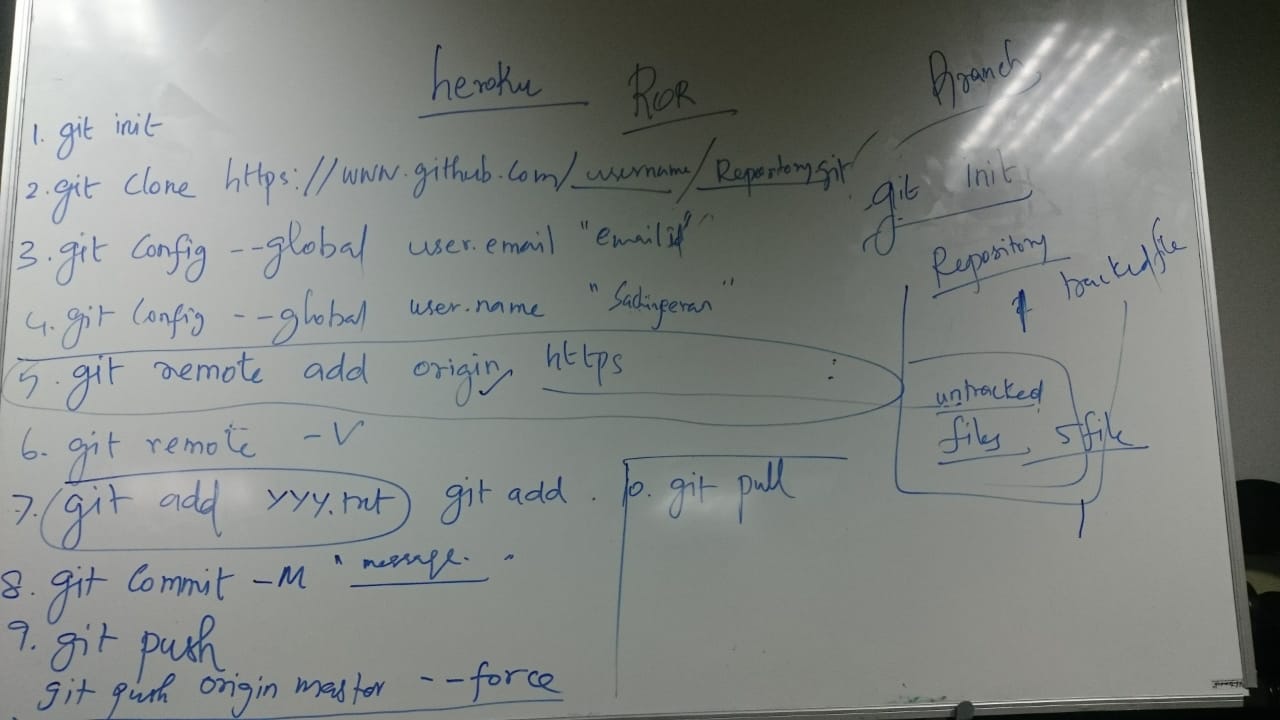 heroku RoR Branch
1. git init
2. git Clone https://www.github.com/username/Repository.git
3. git Config --global user.email "emailid"
4. git Config --global user.name
5. git remote add origin https :
6. git remote -V
7. git add yyy.txt git add .
8. git Commit -M "message."
9. git push
git push origin master --force
10. git pull
git Init
Repository
tracked file
untracked
files, 5 file